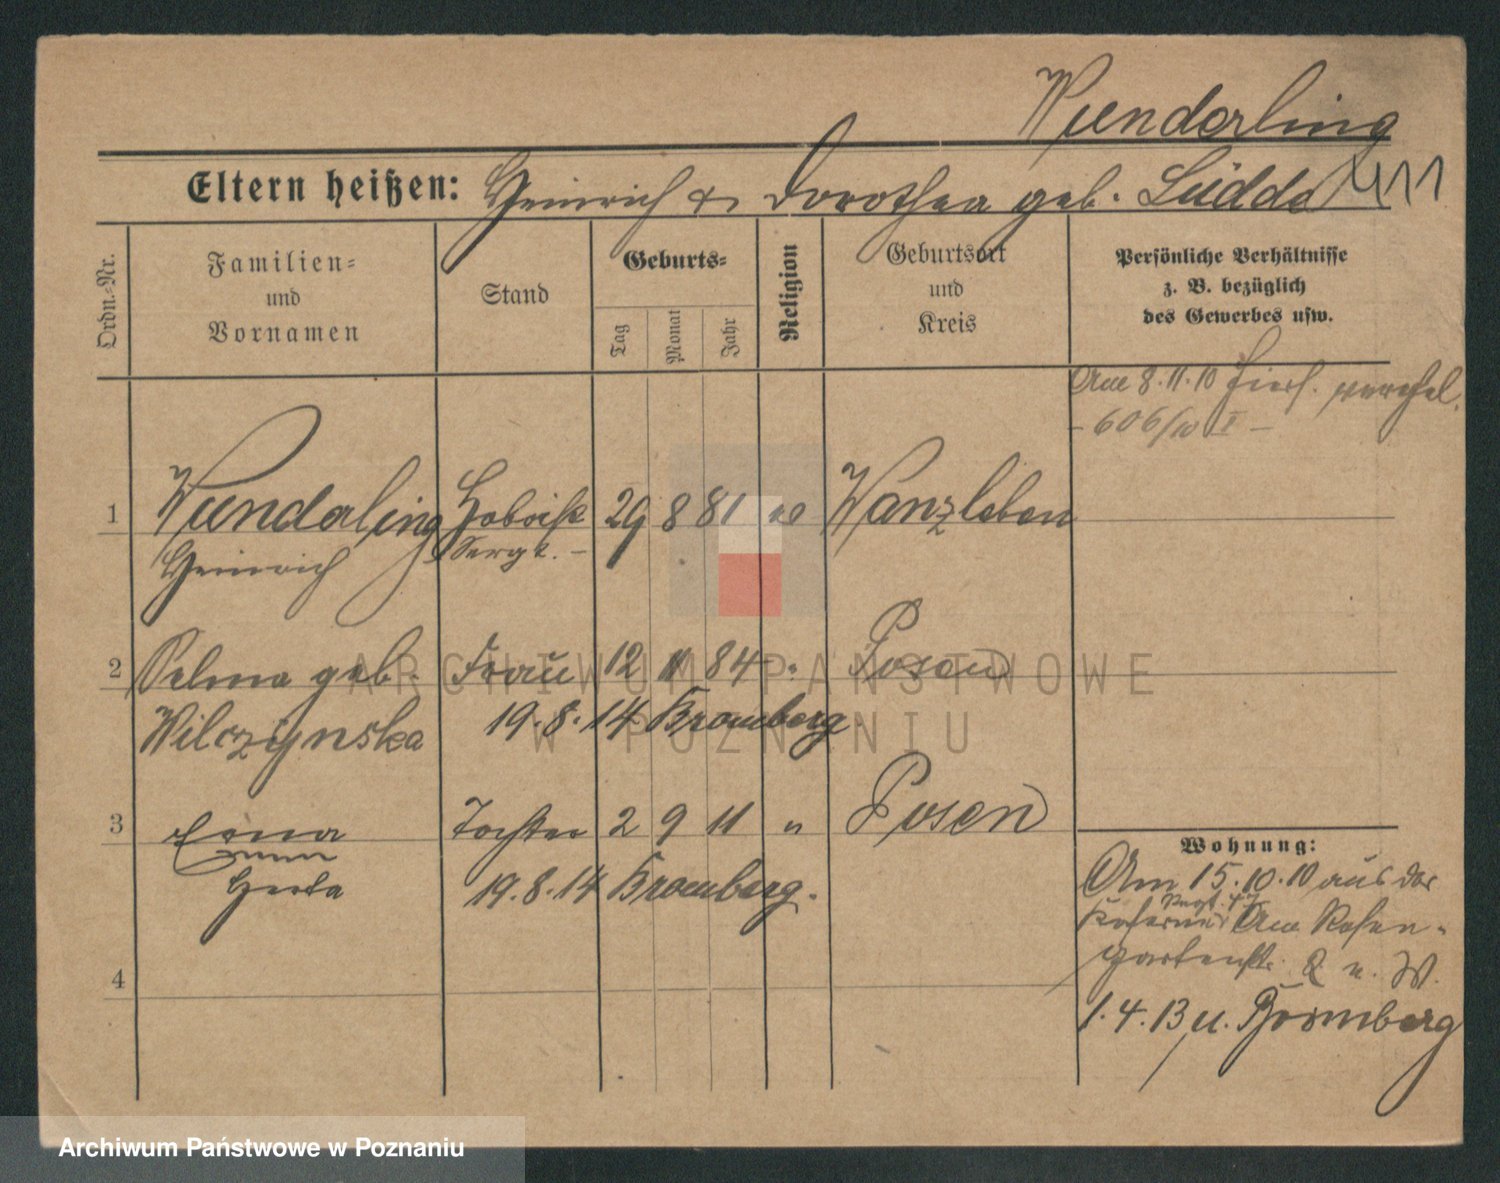 Wunderling
Eltern heißen: Heinrich & Dorothea geb. Lüdde
411
Ordn.-Nr.
Familien-
und
Vornamen
Stand
Geburts-
Tag
Monat
Jahr
Religion
Geburtsort
und
Kreis
Persönliche Verhältnisse
z. B. bezüglich
des Gewerbes usw.
Am 8.11.10 hies.
- 606/10 I -
1 Wunderling Hoboist 29 8 81 ev Wanzleben
Heinrich Sergt. -
2 Selma geb. Frau 12 11 84 " Posen
Wilczynska 19.8.14 Bromberg
3 Erna Tochter 2 9 11 " Posen
Herta 19.8.14 Bromberg.
4
Wohnung:
Am 15.10.10 aus der
Regt. 47
Kaserne Am Rosen-
gartenstr. 8 n. W.
1.4.13 n. Bromberg
ARCHIWUM PAŃSTWOWE
W POZNANIU
Archiwum Państwowe w Poznaniu